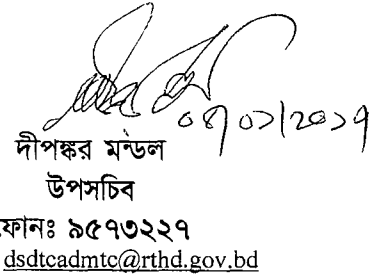 ০৪/০১/২০১৭
দীপঙ্কর মন্ডল
উপসচিব
ফোনঃ ৯৫৭৩২২৭
dsdtcadmtc@rthd.gov.bd